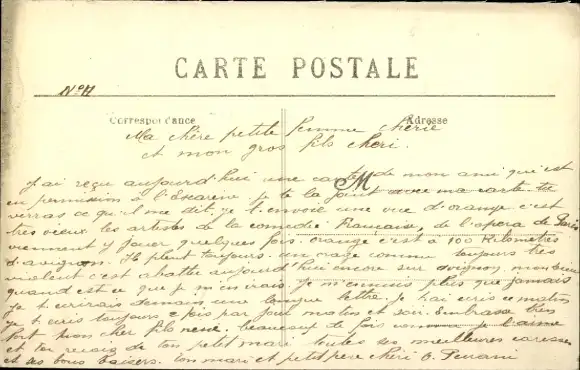 CARTE POSTALE
No 11
Correspondance
Adresse
Ma chère petite femme chérie
et mon gros fils cheri.
J'ai reçu aujourd'hui une carte de mon ami qui est
en permission à l'Escarène. je te la joint avec ma carte tu
verras ce qu'il me dit. je t'envoie une vue d'orange c'est
très vieux les artistes de la comedie Francaise, de l'opera de Paris
viennent y jouer quelques fois. orange c'est à 100 Kilometres
d'avignon. Il pleut toujours un orage comme toujours très
violent c'est abattu aujourd'hui encore sur avignon mon dieu
quand est ce que je m'en irais. je m'ennuis plus que jamais
je t'ecrirais demain une longue lettre. Je t'ai ecris ce matin
je t'ecris toujours 2 fois par jour matin et soir. Embrasse très
fort mon cher fils rené. beaucoup de fois comme je l'aime
et toi recois de ton petit mari toutes ses meilleures caresses
et ses bons baisers. ton mari et petit pere chéri